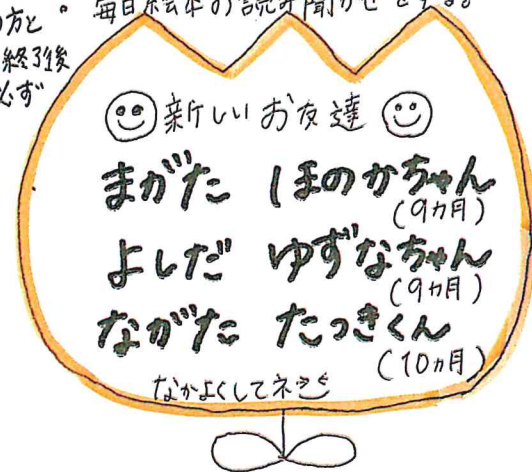 の方と
終了後
必ず
。毎日絵本の読み聞かせをする。
新しいお友達
まがた ほのかちゃん
(9ヵ月)
よしだ ゆずなちゃん
(9ヵ月)
ながた たつきくん
(10ヵ月)
なかよくしてネ